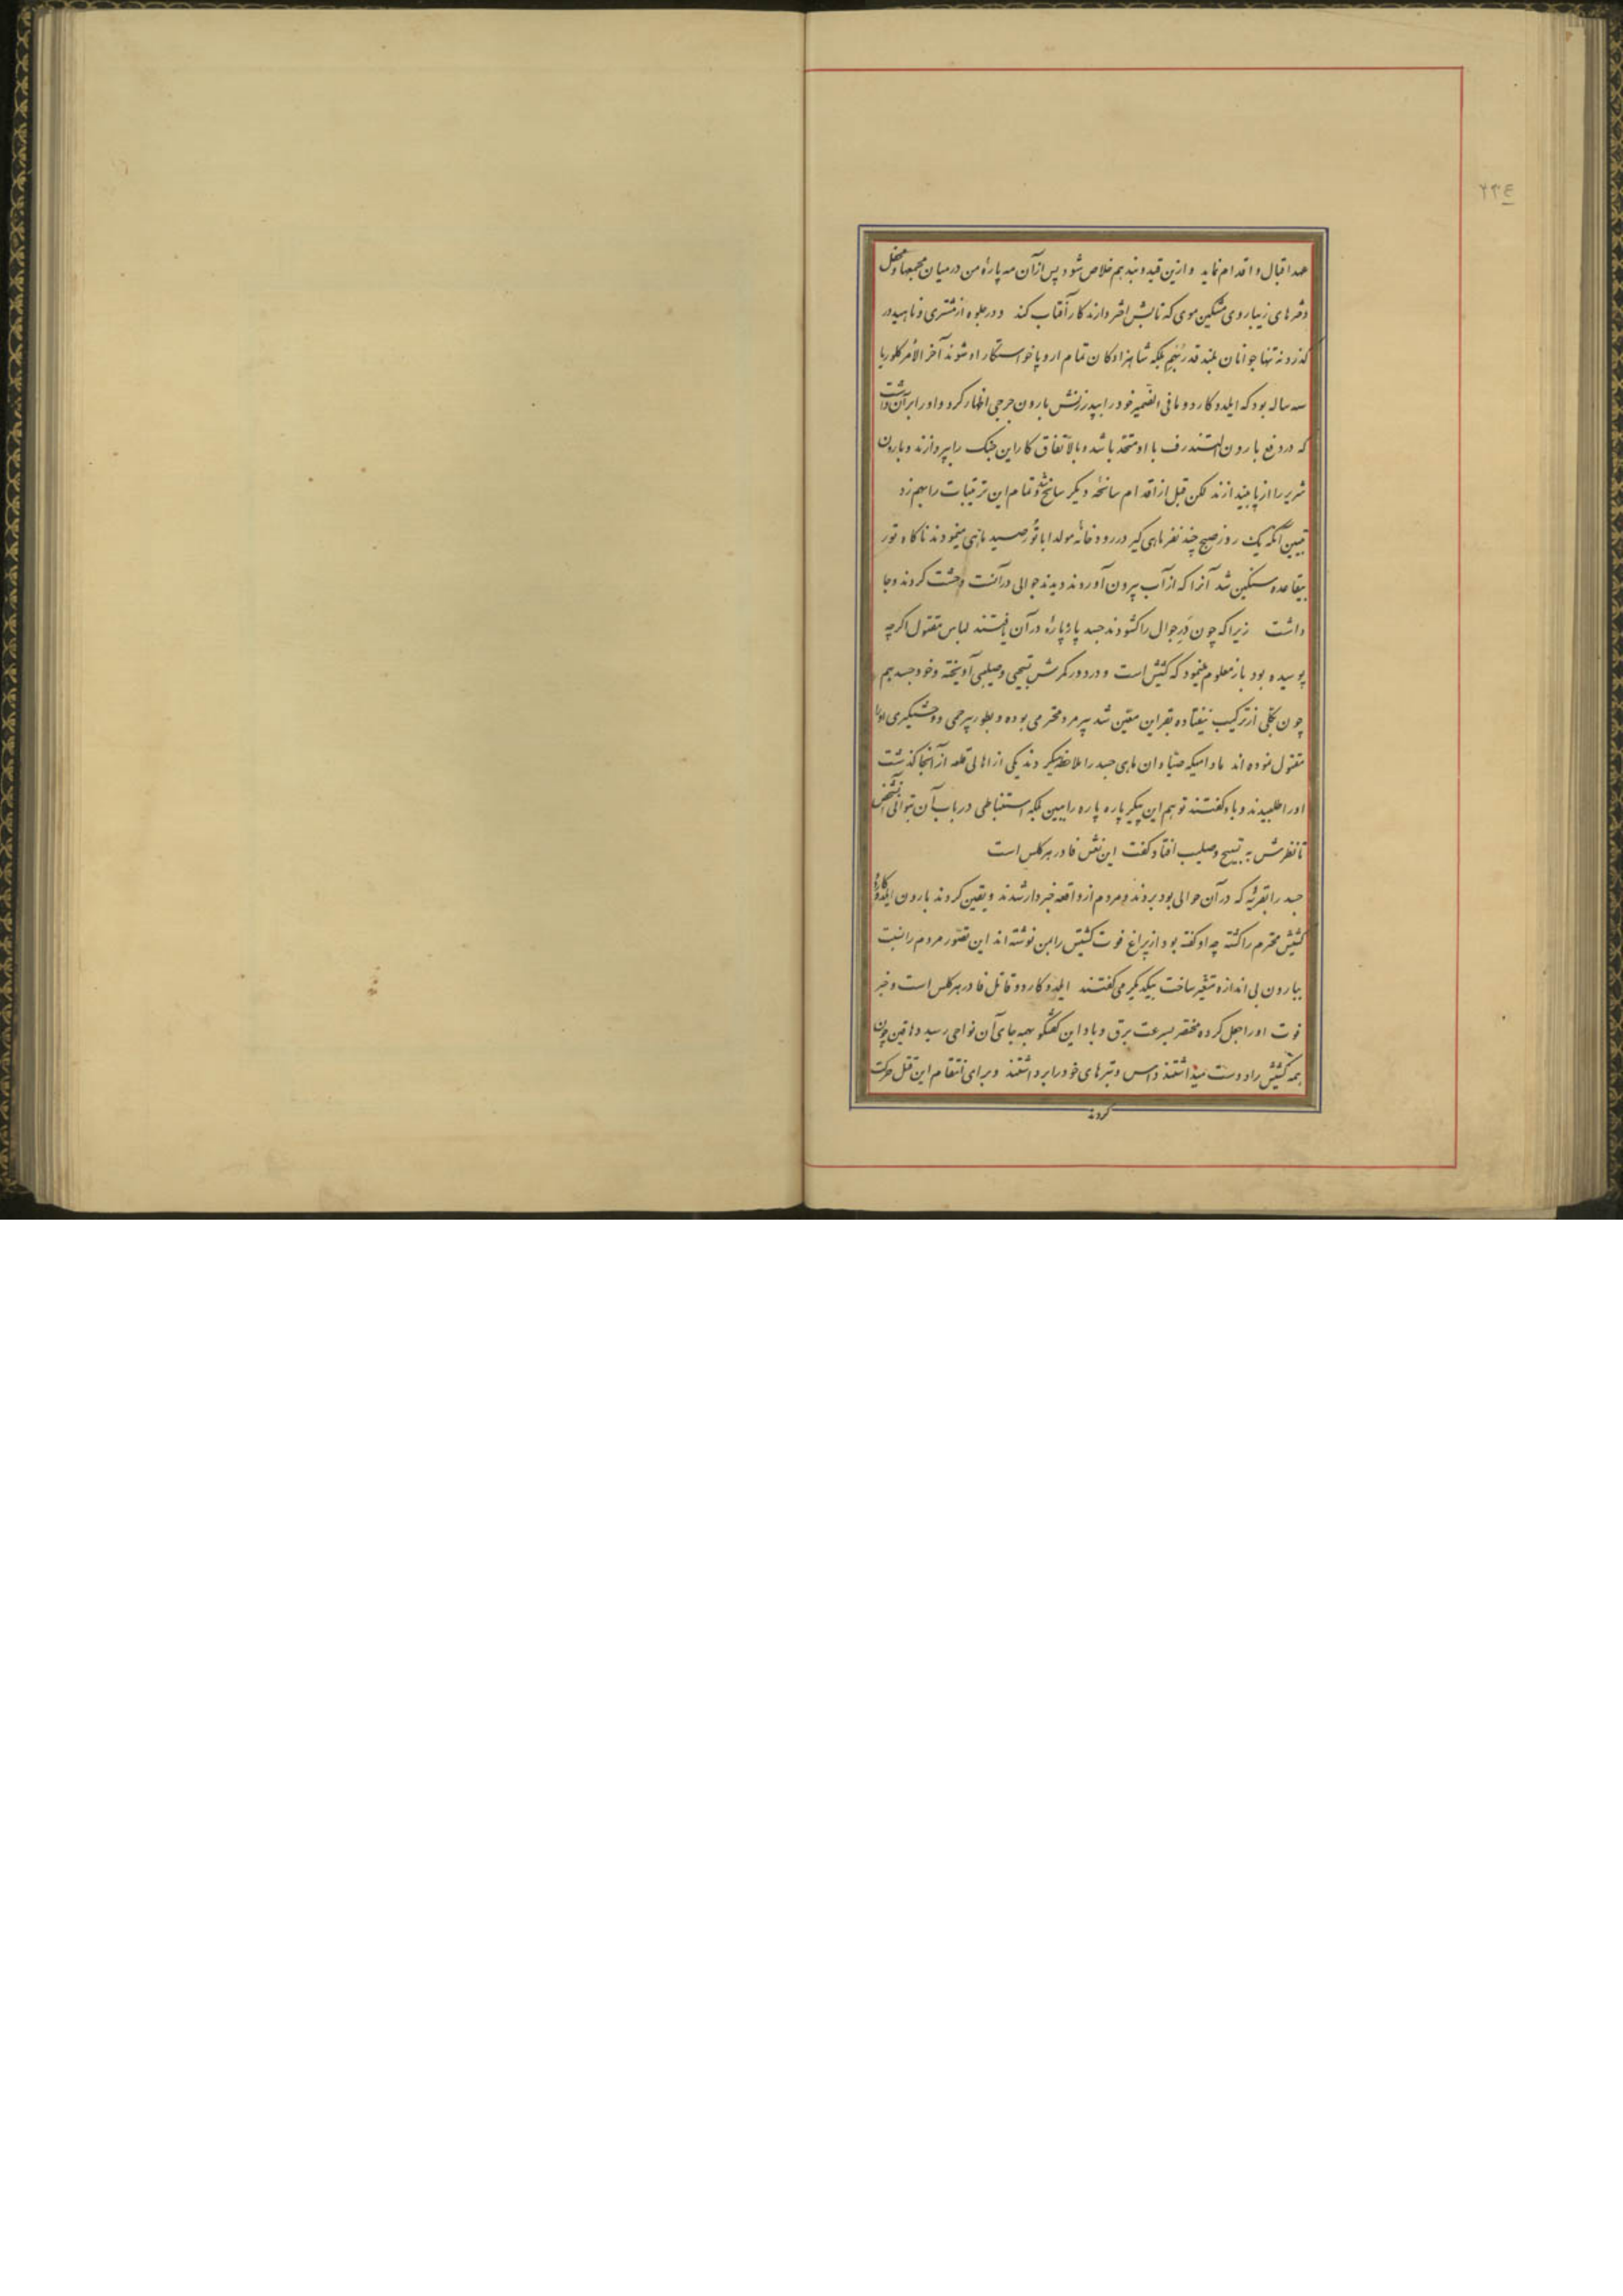 ۲۳٤
صد اقبال و اقدام نماید و ازین قید و بند هم خلاص شود پس از آن مه پارهٔ من در میان مجمعها و محفل
دخترهای زیباروی مشکین موی که تابش اختر دارند کار آفتاب کند و در جلوه از مشتری و ناهید در
گذرد و نه تنها جوانان بلند قدر بلکه شاهزادکان تمام اروپا خواستکار او شوند آخر الأمر کلوریا
سه ساله بود که ایلدو کاردو مافی الضمیر خود را به پدر زنش بارون جرجی اظهار کرد و او را بر آن داشت
که در دفع بارون با او متحد باشد و بالاتفاق کار این جنک را بپردازند و بارون
شریر را از پا بیندازند لکن قبل از اقدام سانحهٔ دیکر سانح شد و تمام این ترتیبات را بهم زد
تبیین آنکه یک روز صبح چند نفر ماهی کیر در رودخانه مولدا با تور صید ماهی مینمودند ناکاه تور
بیقاعده سنکین شد آنرا که از آب بیرون آوردند دیدند جوالی در آنست وحشت کردند و جا
داشت زیرا که چون در جوال را کشودند جسد پاره پاره در آن یافتند لباس مقتول اکرچه
پوسیده بود باز معلوم مینمود که کشیش است و در دور کمرش تسبیحی و صلیبی آویخته و خود جسد هم
چون بکلی از ترکیب نیفتاده بقراین معین شد پیر مرد محترمی بوده و بطور بیرحمی و وحشیکری او را
مقتول نموده اند مادامیکه صیادان ماهی جسد را ملاحظه میکردند یکی از اهالی قلعه از آنجا کذشت
او را طلبیدند و باو کفتند تو هم این پیکر پاره پاره را ببین بلکه استنباطی در باب آن توانی آن شخص
تا نظرش به تسبیح و صلیب افتاد کفت این نعش فادر هرکلس است
جسد را بقریهٔ که در آن حوالی بود بردند و مردم از واقعه خبردار شدند و یقین کردند بارون ایلدو کاردو
کشیش محترم را کشته چه او کفته بود از پراغ فوت کشیش را بمن نوشته اند این تصور مردم را نسبت
ببارون بی اندازه متغیر ساخت بیکدیکر می کفتند ایلدو کاردو قاتل فادر هرکلس است و خبر
فوت او را جعل کرده مختصر بسرعت برق و باد این کفتکو بهمه جای آن نواحی رسید دهاقین چون
همه کشیش را دوست میداشتند داس و تبرهای خود را برداشتند و برای انتقام این قتل حرکت
کردند